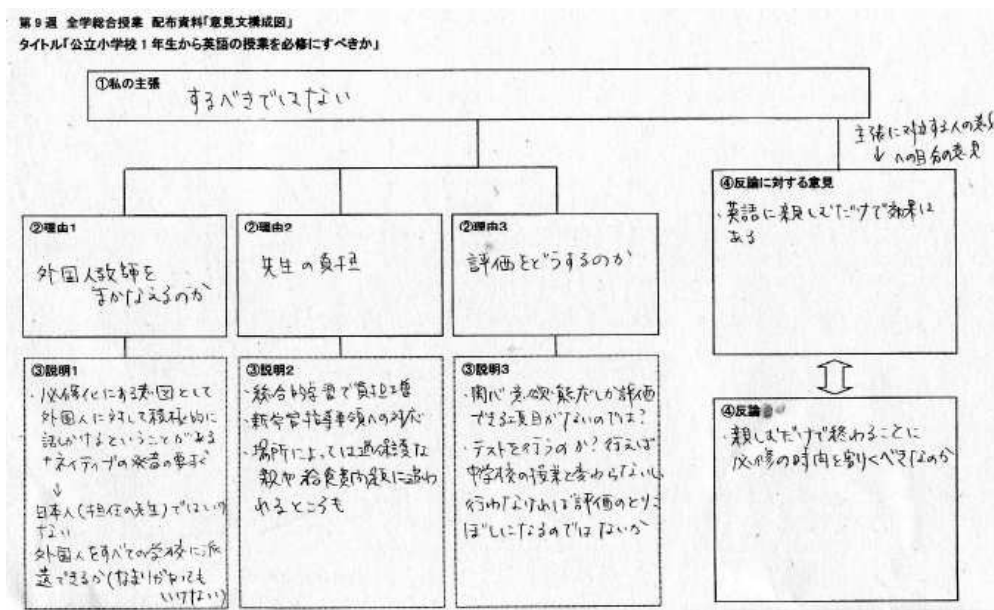 第9週 全学総合授業 配布資料「意見文構成図」
タイトル「公立小学校1年生から英語の授業を必修にすべきか」
①私の主張
するべきではない
主張に対立する人の意見
↓への自分の意見
④反論に対する意見
・英語に親しむだけで効果は
ある
②理由1
外国人教師を
まかなえるのか
②理由2
先生の負担
②理由3
評価をどうするのか
③説明1
・必修化にある意図として
外国人に対して積極的に
話しかけるということがある
+ネイティブの発音の要求
↓
日本人(担任の先生)ではいけ
ない
外国人をすべての学校に派
遣できるか(なまりがあっても
いけない)
③説明2
・総合的学習で負担増
・新学習指導要領への対応
・場所によっては過保護な
親や給食費問題に追わ
れるところも
③説明3
・関心・意欲・態度しか評価
できる項目がないのでは?
・テストを行うのか?行えば
中学校の授業と変わらないし
行わなければ評価のとりこ
ぼしになるのではないか
④反論
・親しむだけで終わることに
必修の時間を割くべきなのか